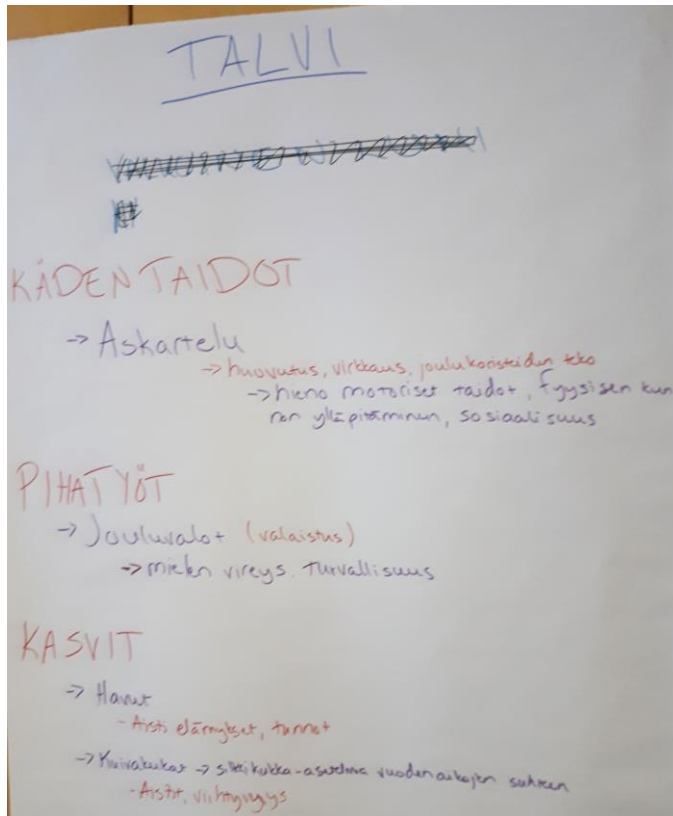 TALVI
KÄDENTAIDOT
-> Askartelu
-> huovutus, virkkaus, joulukoristeiden teko
-> hieno motoriset taidot, fyysisen kun
non ylläpitäminen, sosiaalisuus
PIHATYÖT
-> Jouluvalot (valaistus)
-> mielen vireys. Turvallisuus
KASVIT
-> Havut
- Aisti elämykset, tunnot
-> Kuivakukat -> silkkikukka-asetelmia vuodenaikojen suhteen
- Aistit, viihtyvyys